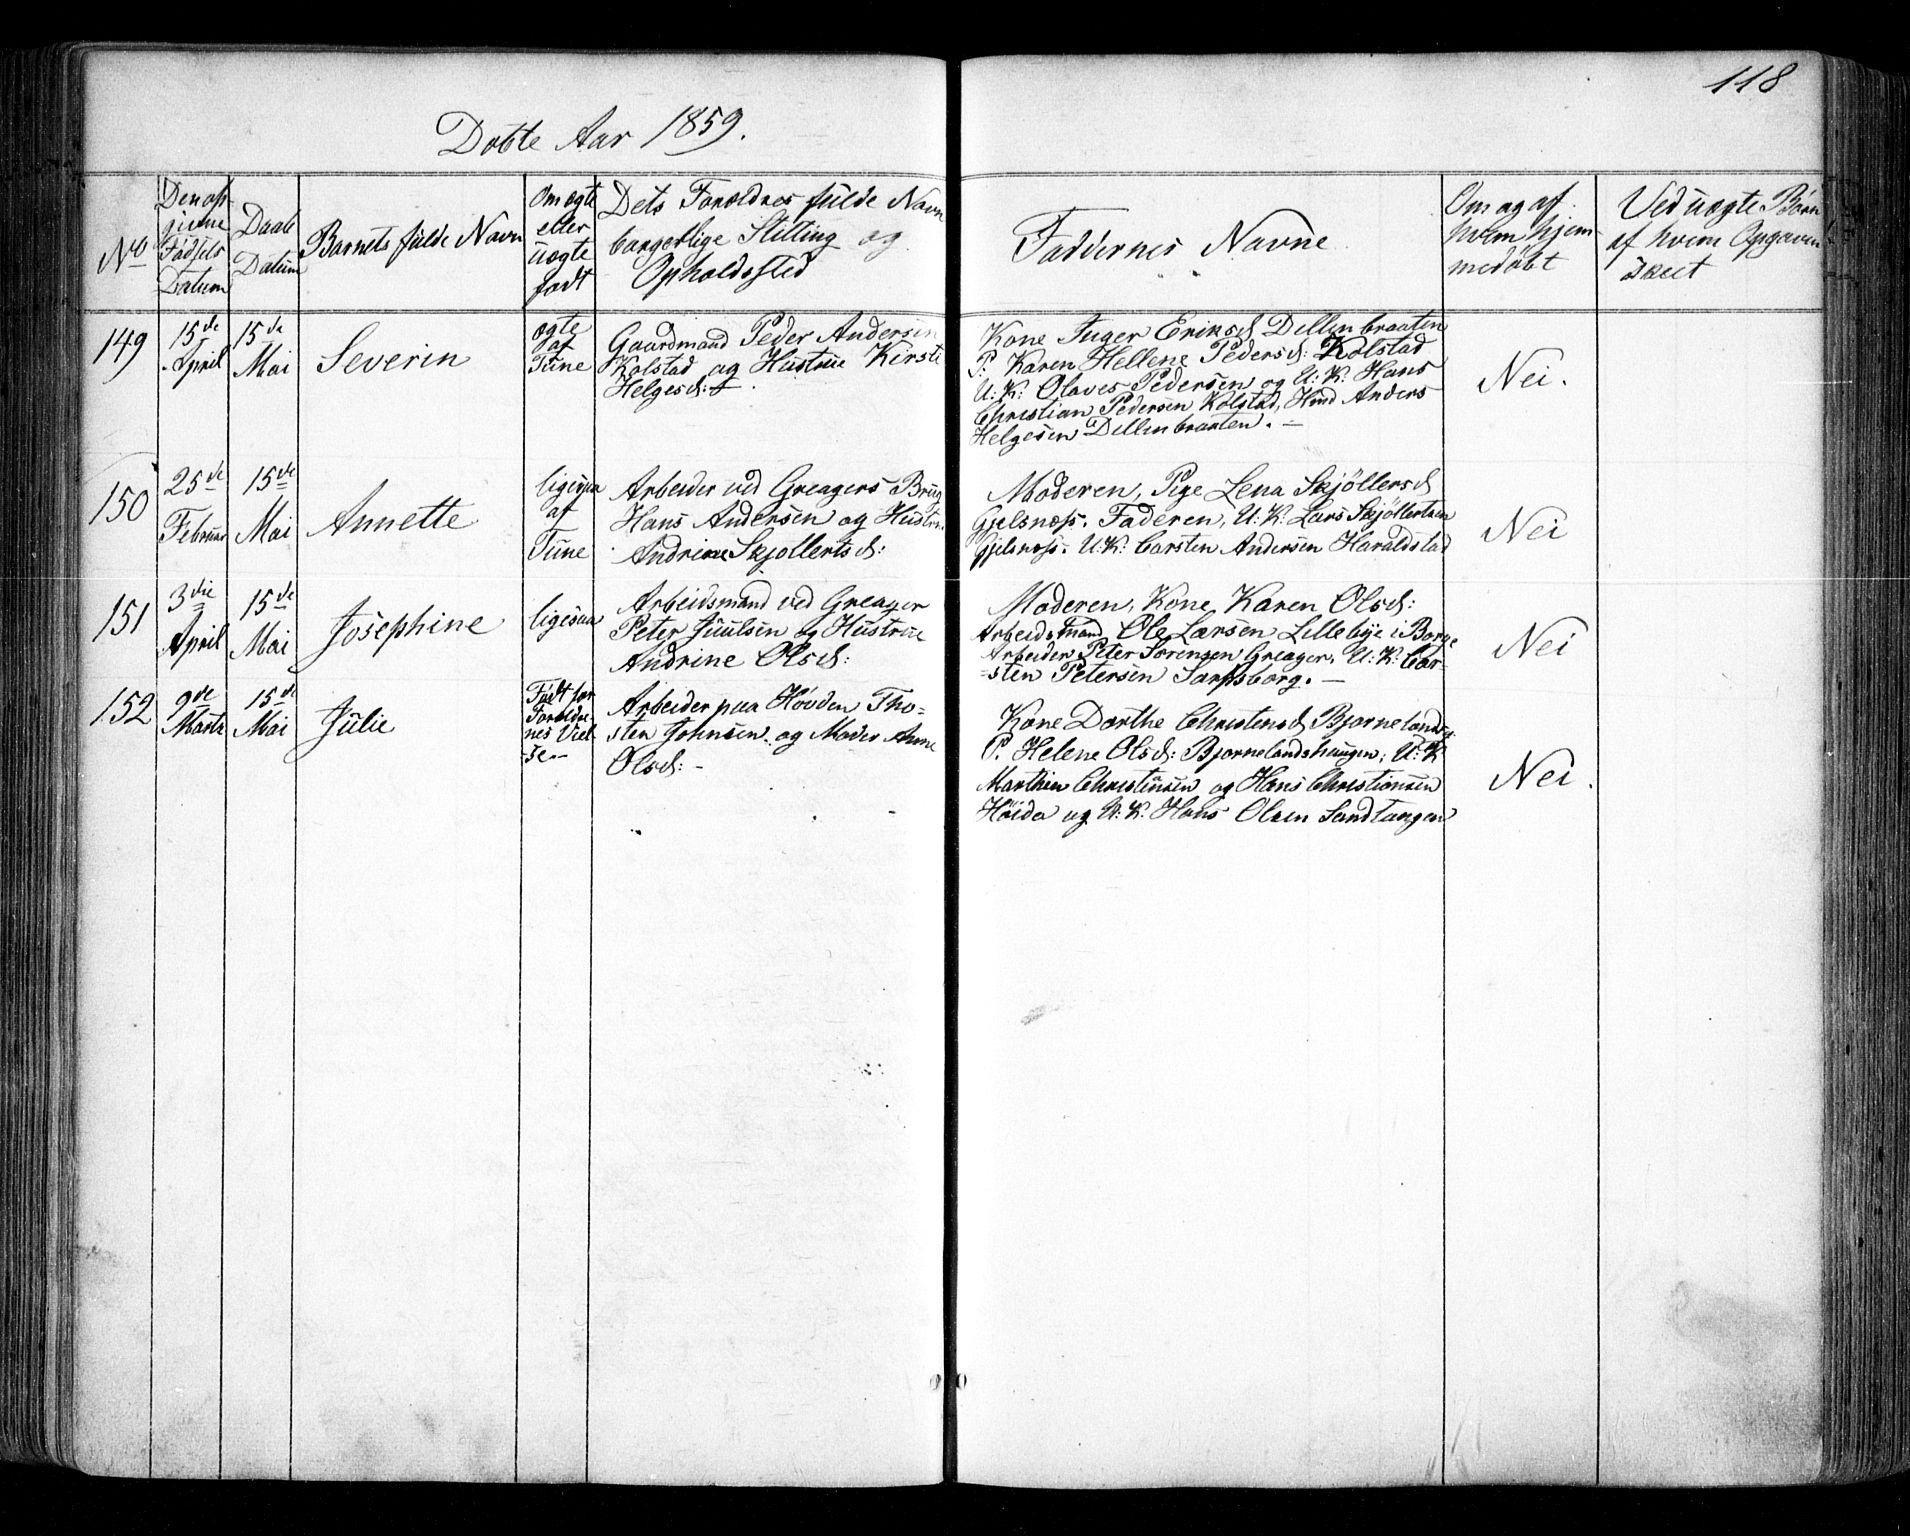 118
Døbte Aar 1859.
No
Den op-
givne
Fødsels
Datum
Daab
Datum
Barnets fulde Navn
Om ægte
eller
uægte
født
Dets Forældres fulde Navn
borgerlige Stilling og
Opholdssted
Faddernes Navne
Om og af
hvem hjem
medøbt
Ved uægte Børn
af hvem Opgaven
skeet
149
15de
April
15de
Mai
Severin
ægte
af
Tune
Gaardmand Peder Andersen
Kolstad og Hustrue Kirsti
Helgesd:
Kone Inger Eriksd Dellinbraaten
P: Karen Hellene Pedersd: Kolstad
U: K: Olaves Pedersen og U: K: Hans
Christian Pedersen Kolstad, Hmd Anders
Helgesen Dellinbraaten. —
Nei.
150
25de
Februar
15de
Mai
Annette
ligesaa
af
Tune
Arbeider ved Greagers Brug
Hans Andersen og Hustru
Andrine Skjøllertsd:
Moderen, Pige Lena Skjøllersd
Gjelsnæss. Faderen, U: K: Lars Skjøllertsen
Gjelsnæss. U. K: Carsten Andersen Haraldstad
Nei
151
3die
April
15de
Mai
Josephine
ligesaa
Arbeidsmand ved Greager
Peter Juulsen og Hustrue
Andrine Olsd:
Moderen, Kone Karen Olsd:
Arbeidsmand Ole Larsen Lillebye i Borge
Arbeider Peter Sørensen Greager, U: K: Car-
sten Petersen Sarpsborg. —
Nei
152
9de
Marts
15de
Mai
Julie
Født før
Forældre-
nes Viel-
se—
Arbeider paa Høiden Tho=
sten Johnsen og Moder Anne
Olsd: -
Kone Dorthe Christensd Bjørneland
P. Helene Olsd: Bjørnelandshaugen, U: K
Marthin Christensen og Hans Christiansen
Høida og U: K: Hans Olsen Sandtangen
Nei.